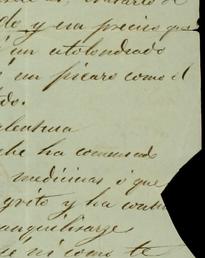 do y era preciso que
un atolondrado
un pícaro como el
do.
calentura
che ha comensado
medicinas ó que
grito y ha
tranquilisarse
ni como te